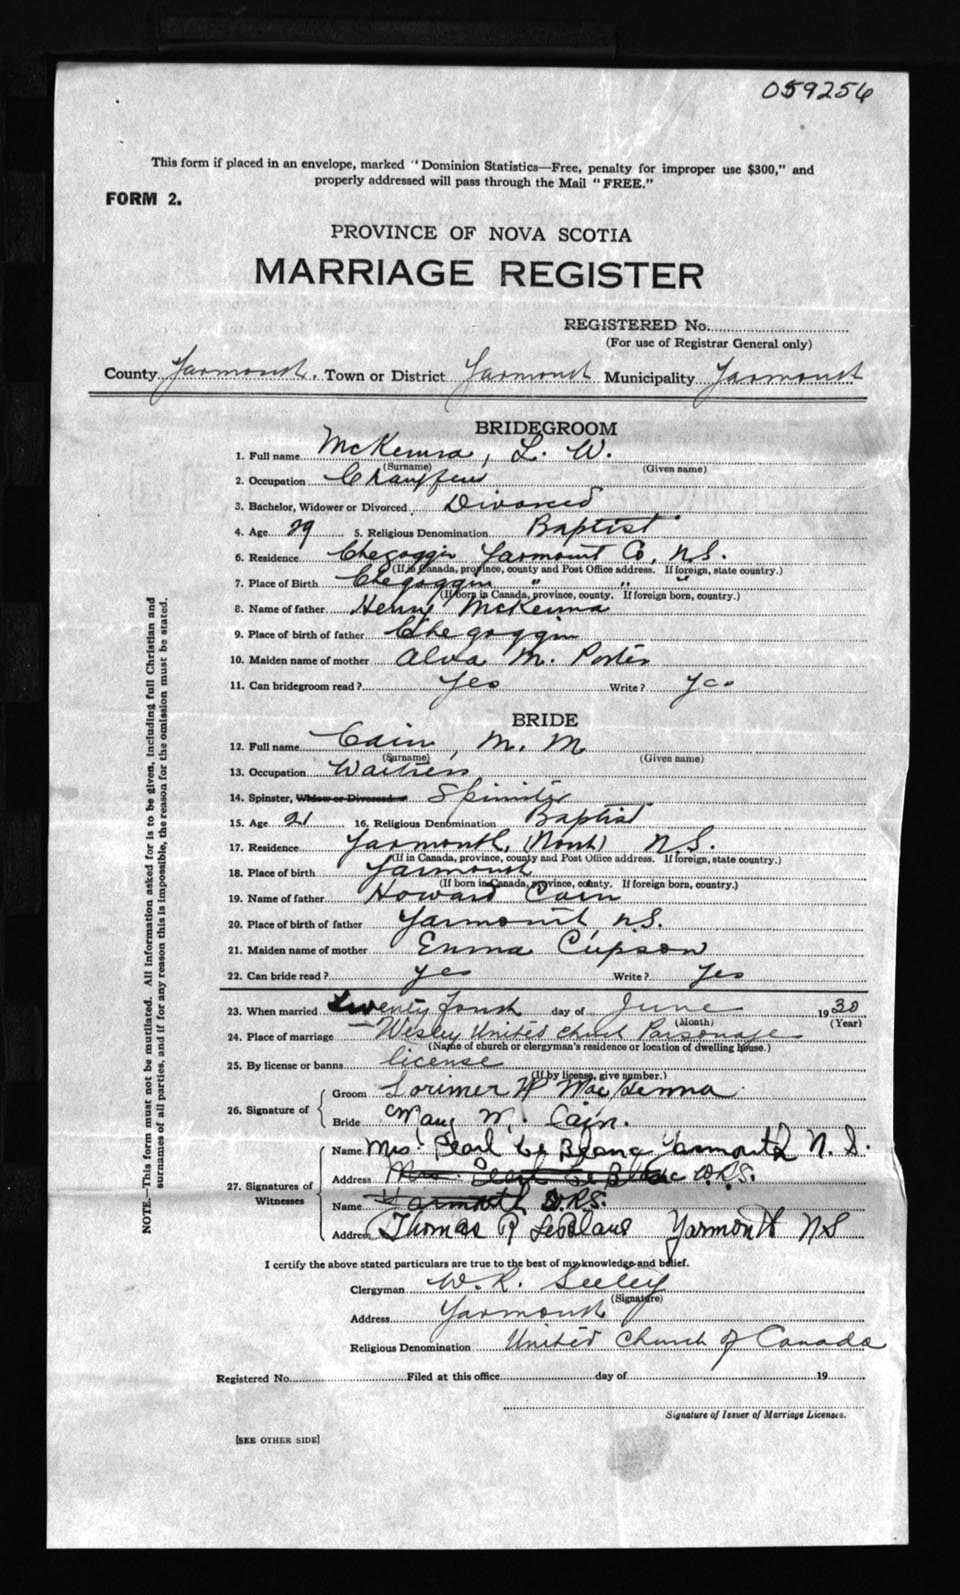 059256
This form if placed in an envelope, marked "Dominion Statistics—Free, penalty for improper use $300," and
properly addressed will pass through the Mail "FREE."
FORM 2.
PROVINCE OF NOVA SCOTIA
MARRIAGE REGISTER
REGISTERED No.
(For use of Registrar General only)
County Yarmouth, Town or District Yarmouth Municipality Yarmouth
BRIDEGROOM
1. Full name McKenna, L. W.
(Surname) (Given name)
2. Occupation Chauffeur
3. Bachelor, Widower or Divorced Divorced
4. Age 29 5. Religious Denomination Baptist
6. Residence Chegoggin Yarmouth Co, N.S.
(If in Canada, province, county and Post Office address. If foreign, state country.)
7. Place of Birth Chegoggin " " "
(If born in Canada, province, county. If foreign born, country.)
8. Name of father Henry McKenna
9. Place of birth of father Chegoggin
10. Maiden name of mother Alva M. Porter
11. Can bridegroom read? Yes Write? Yes
BRIDE
12. Full name Cain, M. M
(Surname) (Given name)
13. Occupation Waitress
14. Spinster, Widow or Divorced Spinster
15. Age 21 16. Religious Denomination Baptist
17. Residence Yarmouth, (North) N.S.
(If in Canada, province, county and Post Office address. If foreign, state country.)
18. Place of birth Yarmouth
(If born in Canada, province, county. If foreign born, country.)
19. Name of father Howard Cain
20. Place of birth of father Yarmouth N.S.
21. Maiden name of mother Emma
22. Can bride read? Yes Write? Yes
23. When married Twenty Fourth day of June 1930
(Month) (Year)
24. Place of marriage — Wesley United Church Parsonage
(Name of church or clergyman's residence or location of dwelling house.)
25. By license or banns license
(If by license, give number.)
26. Signature of
Groom Lorimer W MacKenna
Bride Mary M. Cain.
27. Signatures of Witnesses
Name Mrs. Pearl Le Blanc Yarmouth N. S.
Address Mrs Pearl Le Blanc W.R.S.
Name Yarmouth W.R.S.
Address Thomas R LeBlanc Yarmouth NS
I certify the above stated particulars are true to the best of my knowledge and belief.
Clergyman W. R. Seeley
(Signature)
Address Yarmouth
Religious Denomination United Church of Canada
Registered No. Filed at this office day of 19
Signature of Issuer of Marriage Licenses.
[SEE OTHER SIDE]
NOTE.—This form must not be mutilated. All information asked for is to be given, including full Christian and
surnames of all parties, and if for any reason this is impossible, the reason for the omission must be stated.